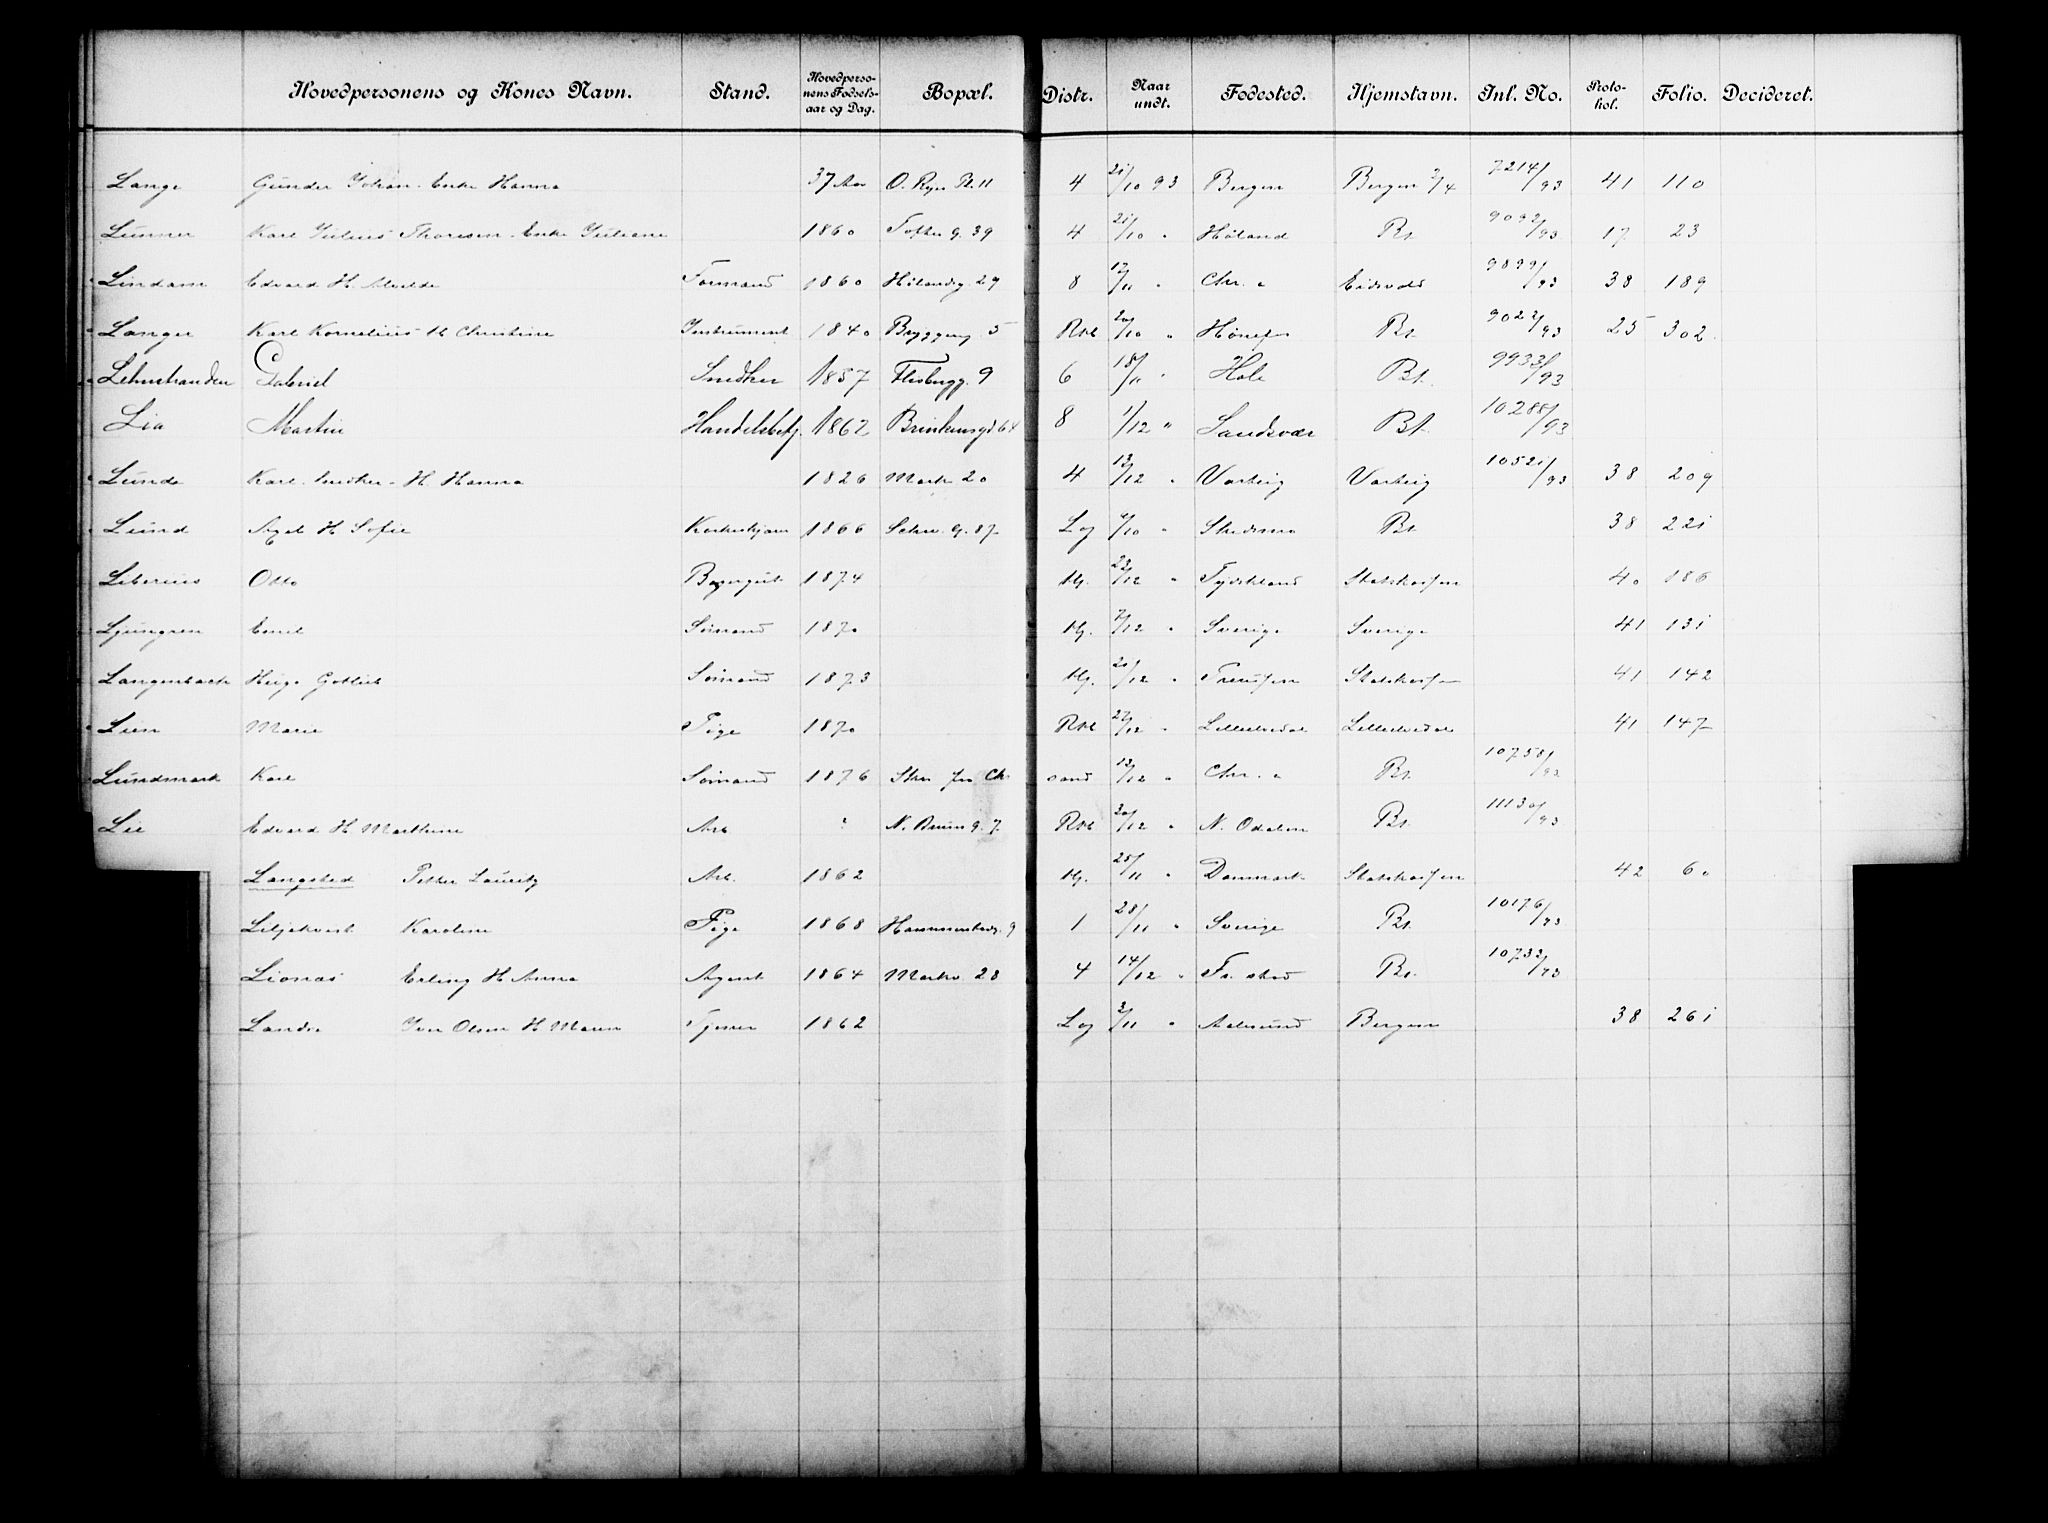 Hovedpersonens og Kones Navn. Stand. Hovedpersonens Fødselsaar og Dag. Bopæl. Distr. Naar undt. Fødested. Hjemstavn. Inl. No. Protokol. Folio. Decideret.
Lange Gunder Johan. Enke Hanna 37 Aar O. Ryes Pl. 11 4 21/10 93 Bergen Bergen 2/4 7214/93 41 110
Lunner Karl Julius Thoresen. Enke Juliane 1860 Tofte g. 39 4 21/10 " Høland Bt. 9092/93 17 23
Lindam Edvard H. Alvilde Formand 1860 Hølandsg. 29 8 17/11 " Chr. a Eidsvold 9899/93 38 189
Langer Karl Kornelius H Christine Instrument 1840 Bryggerg. 5 Rvk 20/10 " Hønefos Bt. 9022/93 25 302
Lehnstranden Gabriel Snedker 1857 Flisbergg. 9 6 18/11 " Hole Bt. 9933/93
Lia Martin Handelsbetj. 1862 Brinkensgd 64 8 1/12 " Sandsvær Bt. 10288/93
Lunde Karl Snedker. H. Hanna 1826 Markv 20 4 13/12 " Varteig Varteig 10521/93 38 209
Lund Axel H Sofie Korkeskjær 1866 Schw. g. 87 Log /10 " Skedsmo Bt. 38 221
Liberius Otto 1874 Hj. 23/12 " Tydskland Statskassen 40 186
Ljungren Emil Sømand 1870 Hj. 7/12 " Sverige Sverige 41 131
Langenback Hugo Gottlieb Sømand 1873 Hj. 20/12 " Preussen Statskassen 41 142
Lien Marie Pige 1870 Rvk 27/12 " Lilleelvedal Lilleelvedal 41 147
Lundmark Karl Sømand 1876 12/12 " Chr. a Bt. 10758/93
Lie Edvard H. Marthine Arb ? N. Bruun g. 7. Rvk 30/12 " N. Odalen Bt. 11130/93
Langsted Petter Lauritz Arb. 1862 Hj. 25/11 " Danmark Statskassen 42 60
Liljekvist Karoline Pige 1868 Hammersborg. 9 1 28/11 " Sverige Bt. 10176/93
Lionæs Erling H Anna Agent 1864 Markv 28 4 14/12 " Fr. stad Bt. 10732/93
Landre Iver Olsen H Maren Tjener 1862 Log 3/11 " Aalesund Bergen 38 261